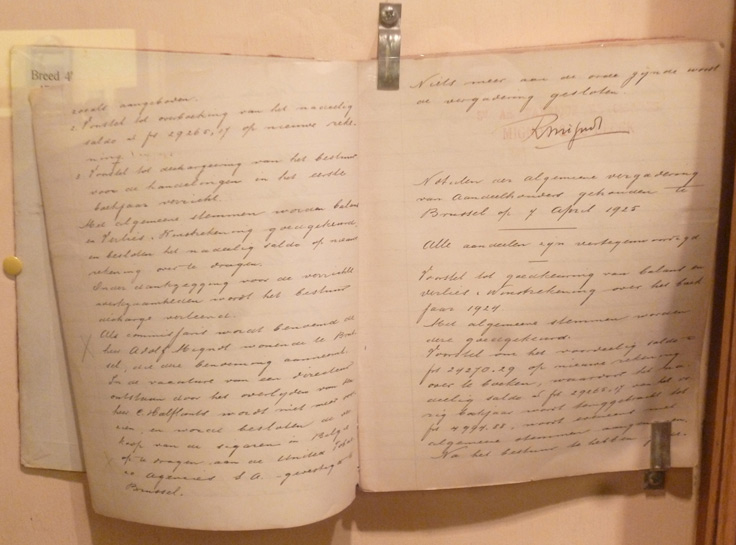 Breed 4'
wordt aangeboden.
2 Voorstel tot overboeking van het nadeelig
saldo à fs 29265,17 op nieuwe reke-
ning.
3 Voorstel tot dechargeering van het bestuur
voor de handelingen in het eerste
boekjaar verricht.
Met algemeene stemmen worden balans
en Verlies & Winstrekening goedgekeurd,
en besloten het nadeelig saldo op nieuwe
rekening over te dragen.
Onder dankzegging voor de verrichte
werkzaamheden wordt het bestuur
decharge verleend.
Als commissaris wordt benoemd de
heer Adolf wonende te
die die benoeming aanneemt.
In de vacature van een directeur
ontstaan door het overlijden van den
heer C. wordt niet
en wordt besloten de
koop van de sigaren in België
op te dragen aan de United
Agencies S.A. gevestigd te
Brussel.
Niets meer aan de orde zijnde wordt
de vergadering gesloten
Notulen der algemeene vergadering
van Aandeelhouders gehouden te
Brussel op 7 April 1925
Alle aandeelen zijn vertegenwoordigd
Voorstel tot goedkeuring van balans en
verlies & Winstrekening over het boek
jaar 1924
Met algemeene stemmen worden
deze goedgekeurd.
Voorstel om het voordeelig saldo à
fs 24270,29 op nieuwe rekening
over te boeken, waardoor het na-
deelig saldo à fs 29265,17 van het vo-
rig boekjaar wordt teruggebracht tot
fs 4994.88, wordt eveneens met
algemeene stemmen aangenomen.
Na het bestuur te hebben